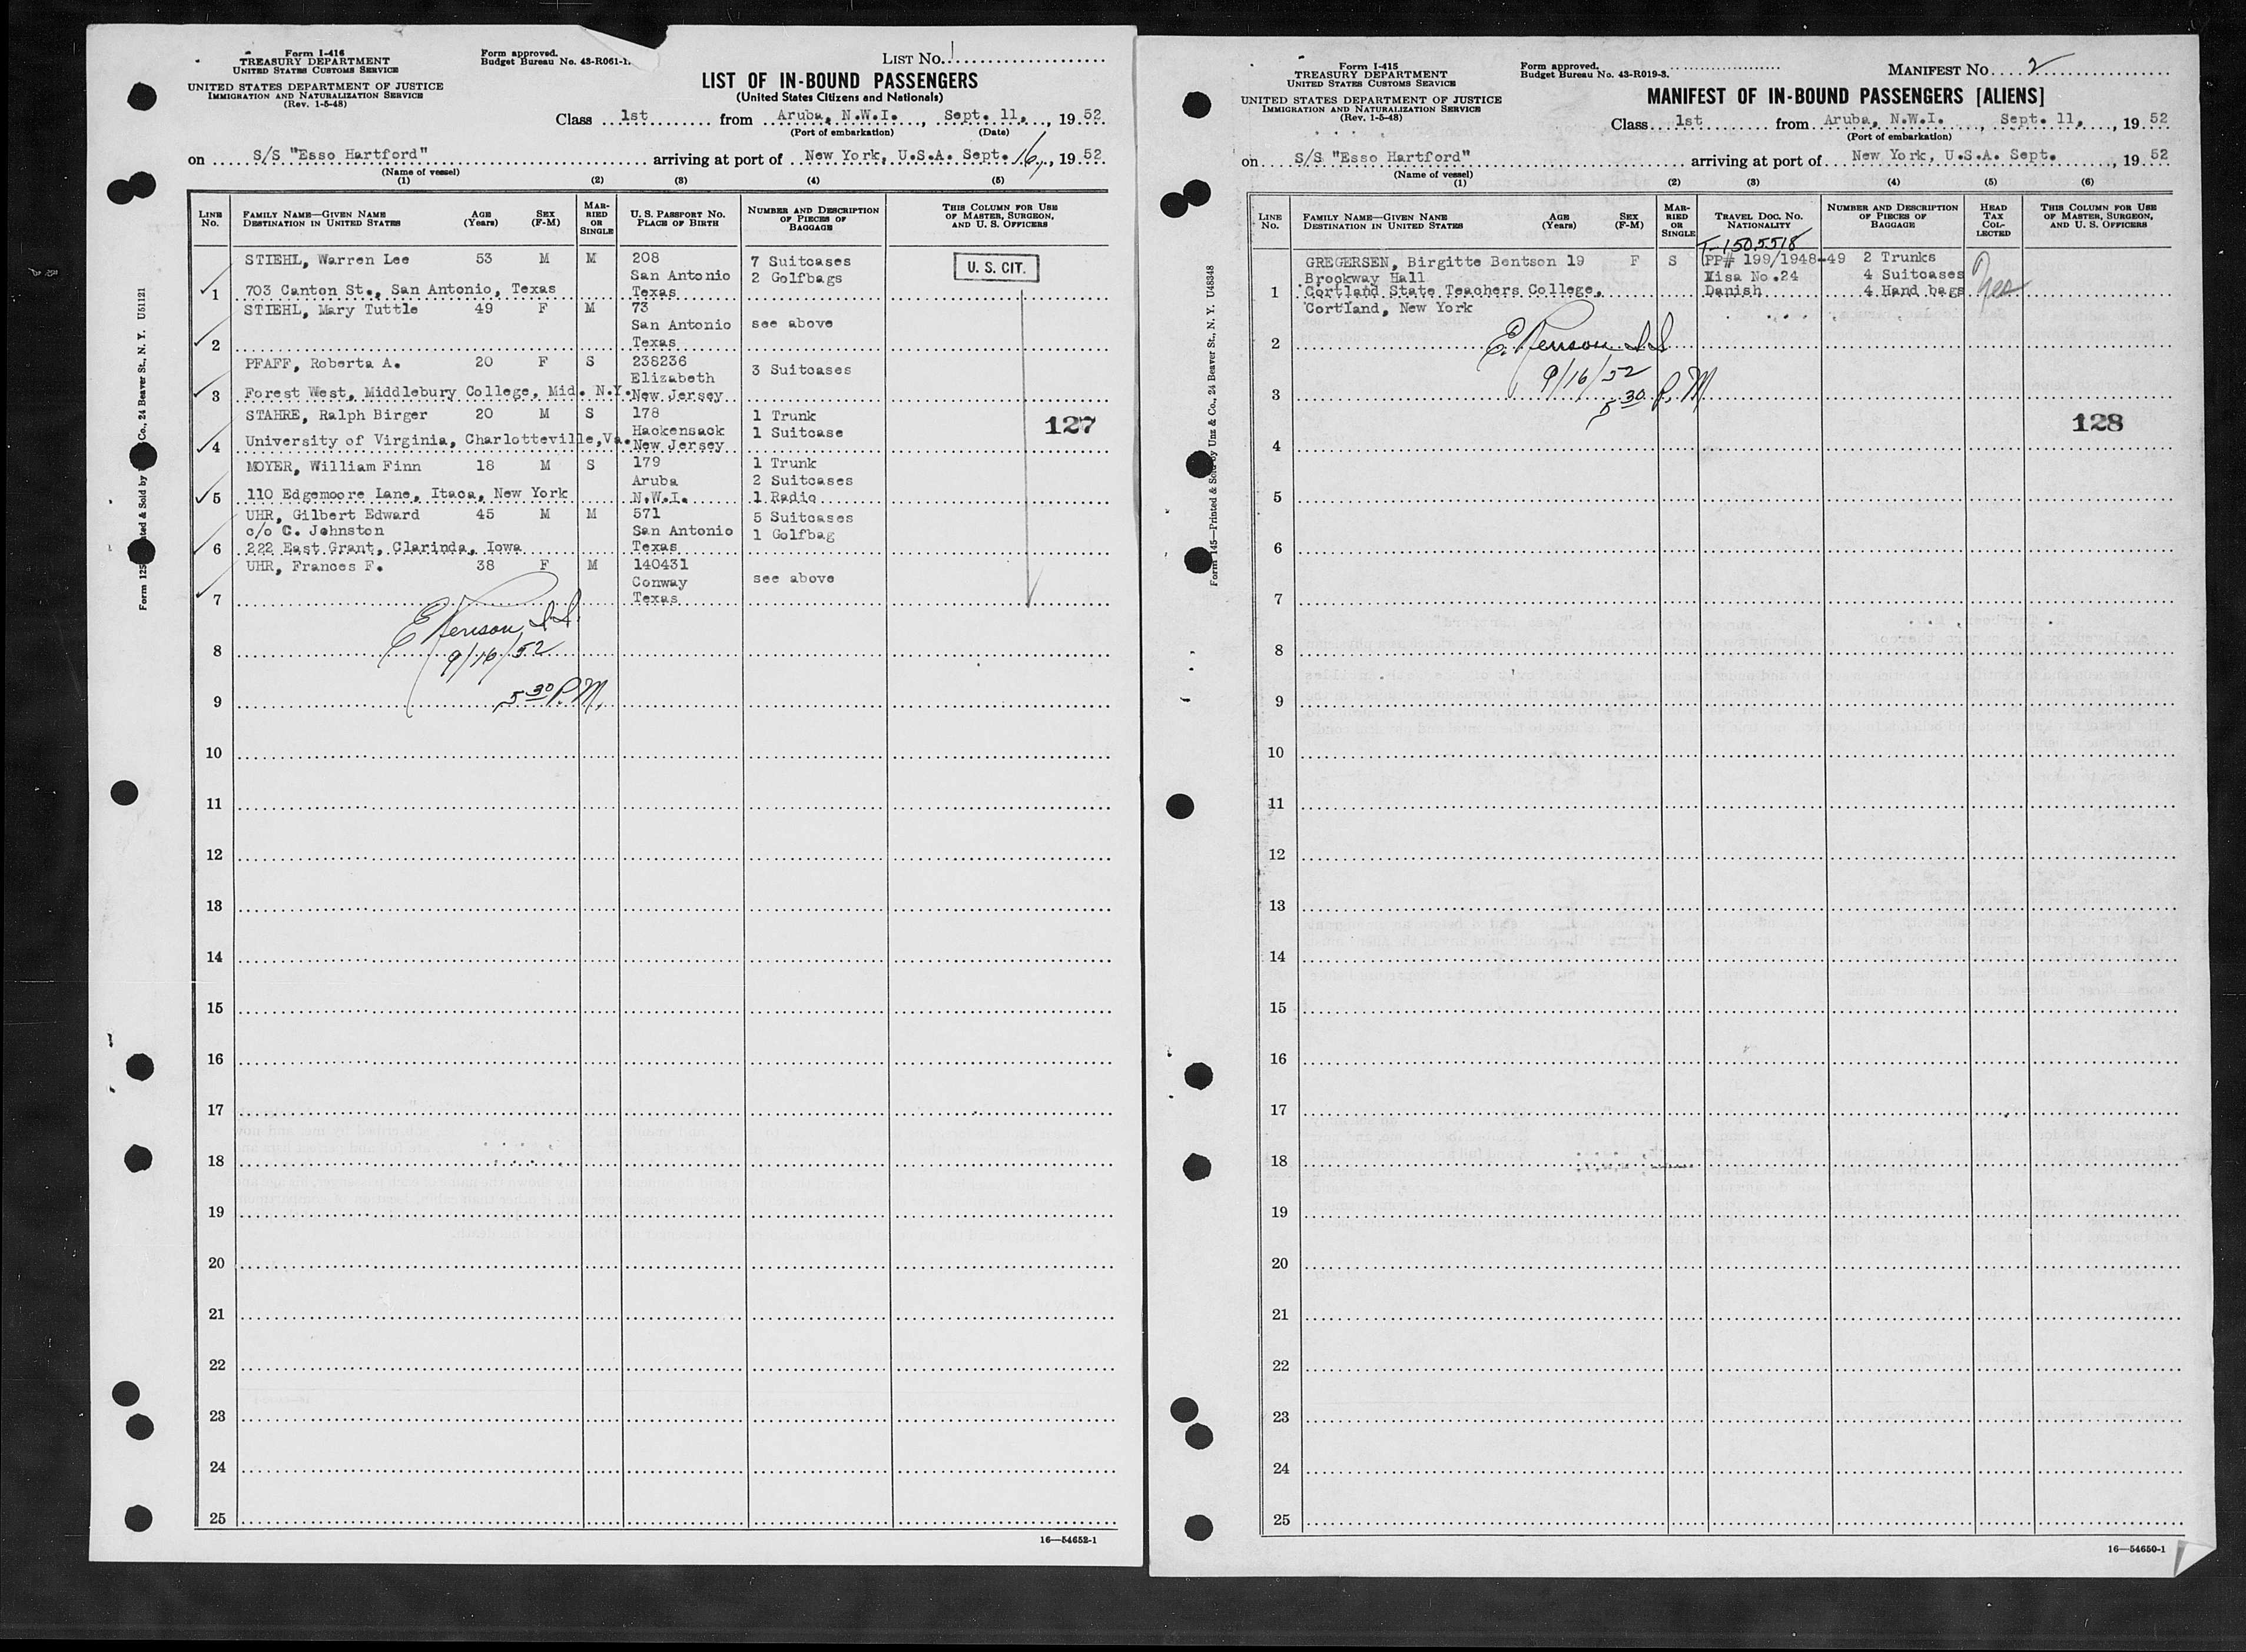 Form I-416
TREASURY DEPARTMENT
UNITED STATES CUSTOMS SERVICE
UNITED STATES DEPARTMENT OF JUSTICE
IMMIGRATION AND NATURALIZATION SERVICE
(Rev. 1-5-48)
Form approved.
Budget Bureau No. 43-R061-1.
LIST No. 1
LIST OF IN-BOUND PASSENGERS
(United States Citizens and Nationals)
Class 1st from Aruba, N.W.I., Sept. 11, 1952
(Port of embarkation) (Date)
on S/S "Esso Hartford" arriving at port of New York, U.S.A. Sept. 16, 1952
(Name of vessel)
(1) (2) (3) (4) (5)
LINE No. FAMILY NAME—GIVEN NAME DESTINATION IN UNITED STATES AGE (Years) SEX (F-M) MARRIED OR SINGLE U. S. PASSPORT NO. PLACE OF BIRTH NUMBER AND DESCRIPTION OF PIECES OF BAGGAGE THIS COLUMN FOR USE OF MASTER, SURGEON, AND U. S. OFFICERS
STIEHL, Warren Lee 53 M M 208 7 Suitcases U. S. CIT.
San Antonio 2 Golfbags
1 703 Canton St., San Antonio, Texas Texas
STIEHL, Mary Tuttle 49 F M 73
San Antonio see above
2 Texas
PFAFF, Roberta A. 20 F S 238236
Elizabeth 3 Suitcases
3 Forest West, Middlebury College, Mid. N.Y. New Jersey
STAHRE, Ralph Birger 20 M S 178 1 Trunk
Hackensack 1 Suitcase 127
4 University of Virginia, Charlotteville, Va. New Jersey
MOYER, William Finn 18 M S 179 1 Trunk
Aruba 2 Suitcases
5 110 Edgemoore Lane, Itaca, New York N.W.I. 1 Radio
UHR, Gilbert Edward 45 M M 571 5 Suitcases
c/o C. Johnston San Antonio 1 Golfbag
6 222 East Grant, Clarinda, Iowa Texas
UHR, Frances F. 38 F M 140431
Conway see above
7 Texas
8 9/16/52
9 5 30 P.M.
10
11
12
13
14
15
16
17
18
19
20
21
22
23
24
25
16—54652-1
Co., 24 Beaver St., N. Y. U51121
Form I-415
TREASURY DEPARTMENT
UNITED STATES CUSTOMS SERVICE
UNITED STATES DEPARTMENT OF JUSTICE
IMMIGRATION AND NATURALIZATION SERVICE
(Rev. 1-5-48)
Form approved.
Budget Bureau No. 43-R019-3.
MANIFEST No. 2
MANIFEST OF IN-BOUND PASSENGERS [ALIENS]
Class 1st from Aruba, N.W.I., Sept. 11, 1952
(Port of embarkation)
on S/S "Esso Hartford" arriving at port of New York, U.S.A. Sept. , 1952
(Name of vessel)
(1) (2) (3) (4) (5) (6)
LINE No. FAMILY NAME—GIVEN NAME DESTINATION IN UNITED STATES AGE (Years) SEX (F-M) MARRIED OR SINGLE TRAVEL DOC. NO. NATIONALITY NUMBER AND DESCRIPTION OF PIECES OF BAGGAGE HEAD TAX COLLECTED THIS COLUMN FOR USE OF MASTER, SURGEON, AND U. S. OFFICERS
T-1505518
GREGERSEN, Birgitte Bentson 19 F S PP# 199/1948-49 2 Trunks
Brookway Hall Visa No.24 4 Suitcases
1 Cortland State Teachers College, Danish 4 Hand bags Yes
Cortland, New York
2
9/16/52
3 5 30 P.M
128
4
5
6
7
8
9
10
11
12
13
14
15
16
17
18
19
20
21
22
23
24
25
16—54650-1
145—Printed & Sold by Unz & Co., 24 Beaver St., N. Y. U48348